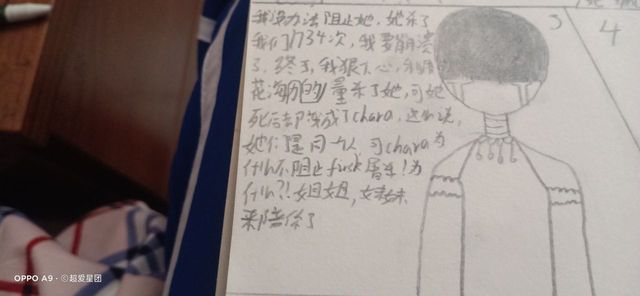 我没办法阻止她，她杀了
我们1734次，我要崩溃
了，终了，我狠下心，利用
花海的力量杀了她，可她
死后却变成了chara，这么说，
她们是同一人，可chara为
什么不阻止frisk屠杀！为
什么?! 姐姐，妹妹
来陪你了
3
4
OPPO A9 · ©超爱星团